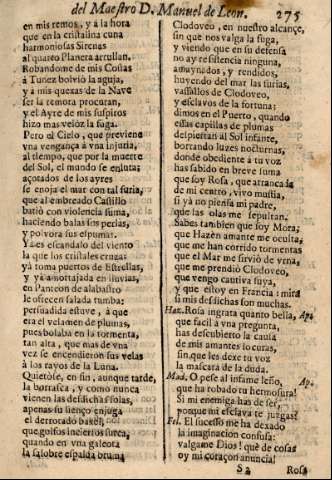 del Maestro D. Manuel de Leon. 275
en mis remos, y à la hora
que en la cristalina cuna
harmoniosas Sirenas
al quarto Planeta arrullan.
Robandome de mis Costas
à Tunez bolviò la aguja,
y à mis quexas de la Nave
ser la remora procuran,
y el Ayre de mis suspiros
hizo mas veloz la fuga.
Pero el Cielo, que previene
vna vengança à vna injuria,
al tiempo, que por la muerte
del Sol, el mundo se enluta;
açotados de los ayres
se enoja el mar con tal furia,
que al embreado Castillo
batiò con violencia suma,
haciendo balas las perlas,
y polvora sus espumas.
Ya es escandalo del viento
la que los cristales cruza;
yà toma puertos de Estrellas,
y yà amortajada en lluvias,
en Panteon de alabastro
le ofrecen salada tumba:
persuadida estuve, à que
era el velamen de plumas,
pues bolaba en la tormenta,
tan alta, que mas de vna
vez se encendieron sus velas
à los rayos de la Luna.
Quietòse, en fin, aunque tarde,
la borrasca, y como nunca
vienen las desdichas solas,
apenas su lienço enjuga
el derrotado baxel,
que golfos inciertos surca,
quando en vna galeota
la salobre espalda bruma
Clodoveo, en nuestro alcançe,
sin que nos valga la fuga,
y viendo que en su defensa
no ay resistencia ninguna,
amaynados, y rendidos,
huyendo del mar las furias,
vassallos de Clodoveo,
y esclavos de la fortuna;
dimos en el Puerto, quando
essas capillas de plumas
despiertan al Sol infante,
borrando luzes nocturnas,
donde obediente à tu voz
has sabido en breve suma
que soy Rosa, que arrancada
de mi centro, vivo mustia,
si yà no piensa mi padre,
que las olas me sepultan.
Sabes tambien que soy Mora;
que Hazèn amante me oculta,
que me han corrido tormentas
que el Mar me sirviò de vrna,
que me prendiò Clodoveo,
que vengo cautiva suya,
y que estoy en Francia: mira
si mis desdichas son muchas.
Haz. Rosa ingrata quanto bella, Ap.
que facil à vna pregunta,
has descubierto la causa
de mis amantes locuras,
sin que les dexe tu voz
la mascara de la duda.
Mad. O pese al infame lefio, Ap.
que ha robado tu hermosura!
Si mi enemiga has de ser,
porque mi esclava te juzgas?
Fel. El sucesso me ha dexado
la imaginacion confusa:
valgame Dios! què de cosas
oy mi coraçon anuncia!
S 2 Rosa